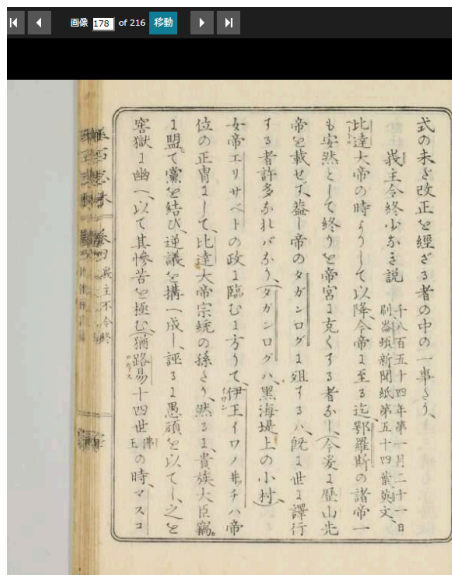 画像 178 of 216 移動
式の未と改正を經ざる者の中の一事さり、
峩主令終少かき説 千八百五十四年第一月二十一日
刷諭頓新聞紙第五十四葉英文、
比達大帝の時よりして以降今帝よ至る迄鄂羅斯の諸帝一
も安然として終りを帝宮よ克くする者かし、今爰よ歴山先
帝を載せず、蓋し帝のタガンログよ殂するハ、既よ世よ譯行
する者許多かれバかり、タガンログハ、黒海堤上の小村、
女帝エリサベトの政よ臨むよ方りて、伊王イワノ弗チハ帝
位の正冑よして、比達大帝宗統の孫さり、然るよ、貴族大臣竊
よ盟て黨を結び、逆議を搆へ成し、誣るよ愚頑を以てし、之を
窖獄よ幽へ以て其惨苦を極む、猶路易十四世 佛王 の時マスコ